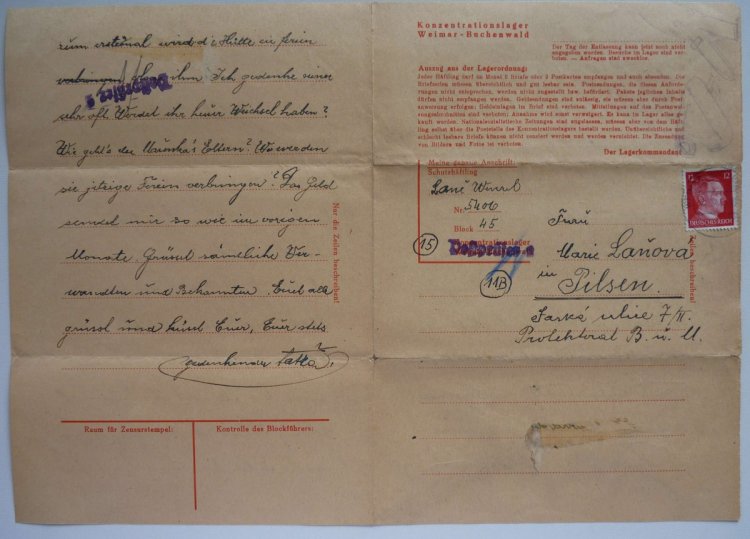 zum erstemal wird di Hütte in ferien
verbringen ohne ihm Ich gedenke seiner
Postprüfer 2
sehr oft Werdet ihr heuer Weichsel haben?
Wie geht's den Mařenka's Eltern? Wo werden
sie jetzige Ferien verbringen? Das Geld
sendet mir so wie im vorigen
Monate. Grüsst sämtliche Ver-
wandten und Bekannten. Euch alle
grüsst und küsst Euer, Euer stets
gedenkender Tatka.
Nur die Zeilen beschreiben!
Raum für Zensurstempel:
Kontrolle des Blockführers:
Konzentrationslager
Weimar-Buchenwald
Der Tag der Entlassung kann jetzt noch nicht
angegeben werden. Besuche im Lager sind ver-
boten. — Anfragen sind zwecklos.
Auszug aus der Lagerordnung:
Jeder Häftling darf im Monat 2 Briefe oder 2 Postkarten empfangen und auch absenden. Die
Briefzeilen müssen übersichtlich und gut lesbar sein. Postsendungen, die diesen Anforde-
rungen nicht entsprechen, werden nicht zugestellt bzw. befördert. Pakete jeglichen Inhalts
dürfen nicht empfangen werden. Geldsendungen sind zulässig, sie müssen aber durch Post-
anweisung erfolgen; Geldeinlagen im Brief sind verboten. Mitteilungen auf den Postanwei-
sungsabschnitten sind verboten; Annahme wird sonst verweigert. Es kann im Lager alles ge-
kauft werden. Nationalsozialistische Zeitungen sind zugelassen, müssen aber von dem Häft-
ling selbst über die Poststelle des Konzentrationslagers bestellt werden. Unübersichtliche und
schlecht lesbare Briefe können nicht zensiert werden und werden vernichtet. Die Zusendung
von Bildern und Fotos ist verboten.
Der Lagerkommandant
Meine genaue Anschrift:
Schutzhäftling
Nr. 5406
Block 45
Konzentrationslager
Postprüfer 2
15
11B
12 12
DEUTSCHES REICH
Frau
Marie Laňova
in
Pilsen.
ulice 7/II.
Protektorat B. u. M.